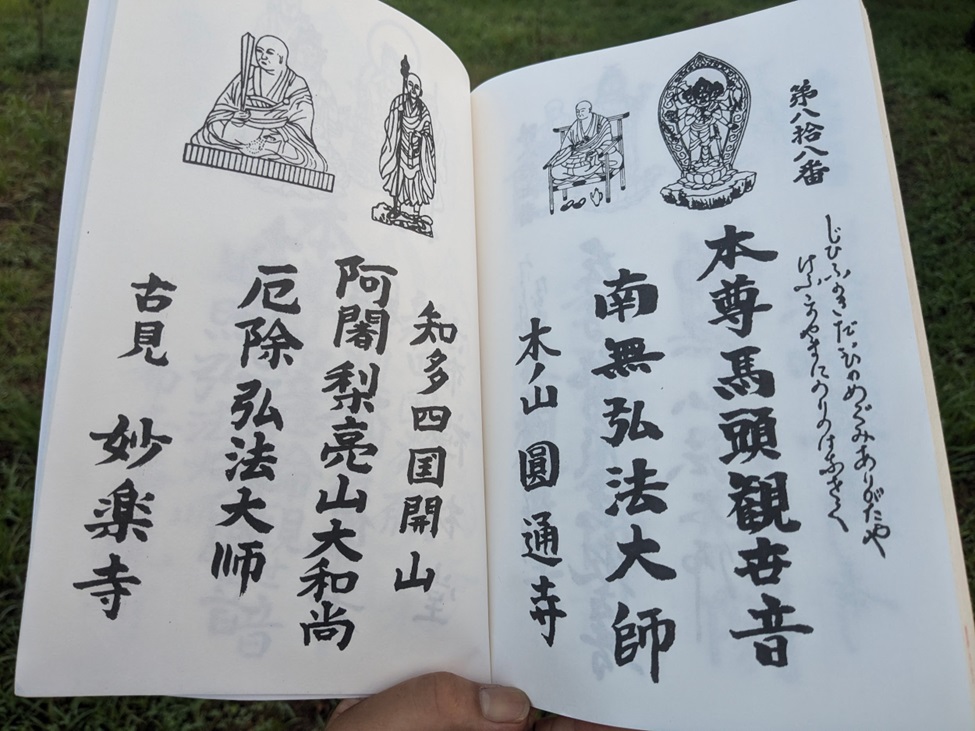 第八拾八番
じひふかきだいひのめぐみありがたや
けふ やまにのりのはなさく
本尊馬頭観世音
南無弘法大師
木ノ山 圓通寺
知多四国開山
阿闍梨亮山大和尚
厄除弘法大师
古見 妙楽寺